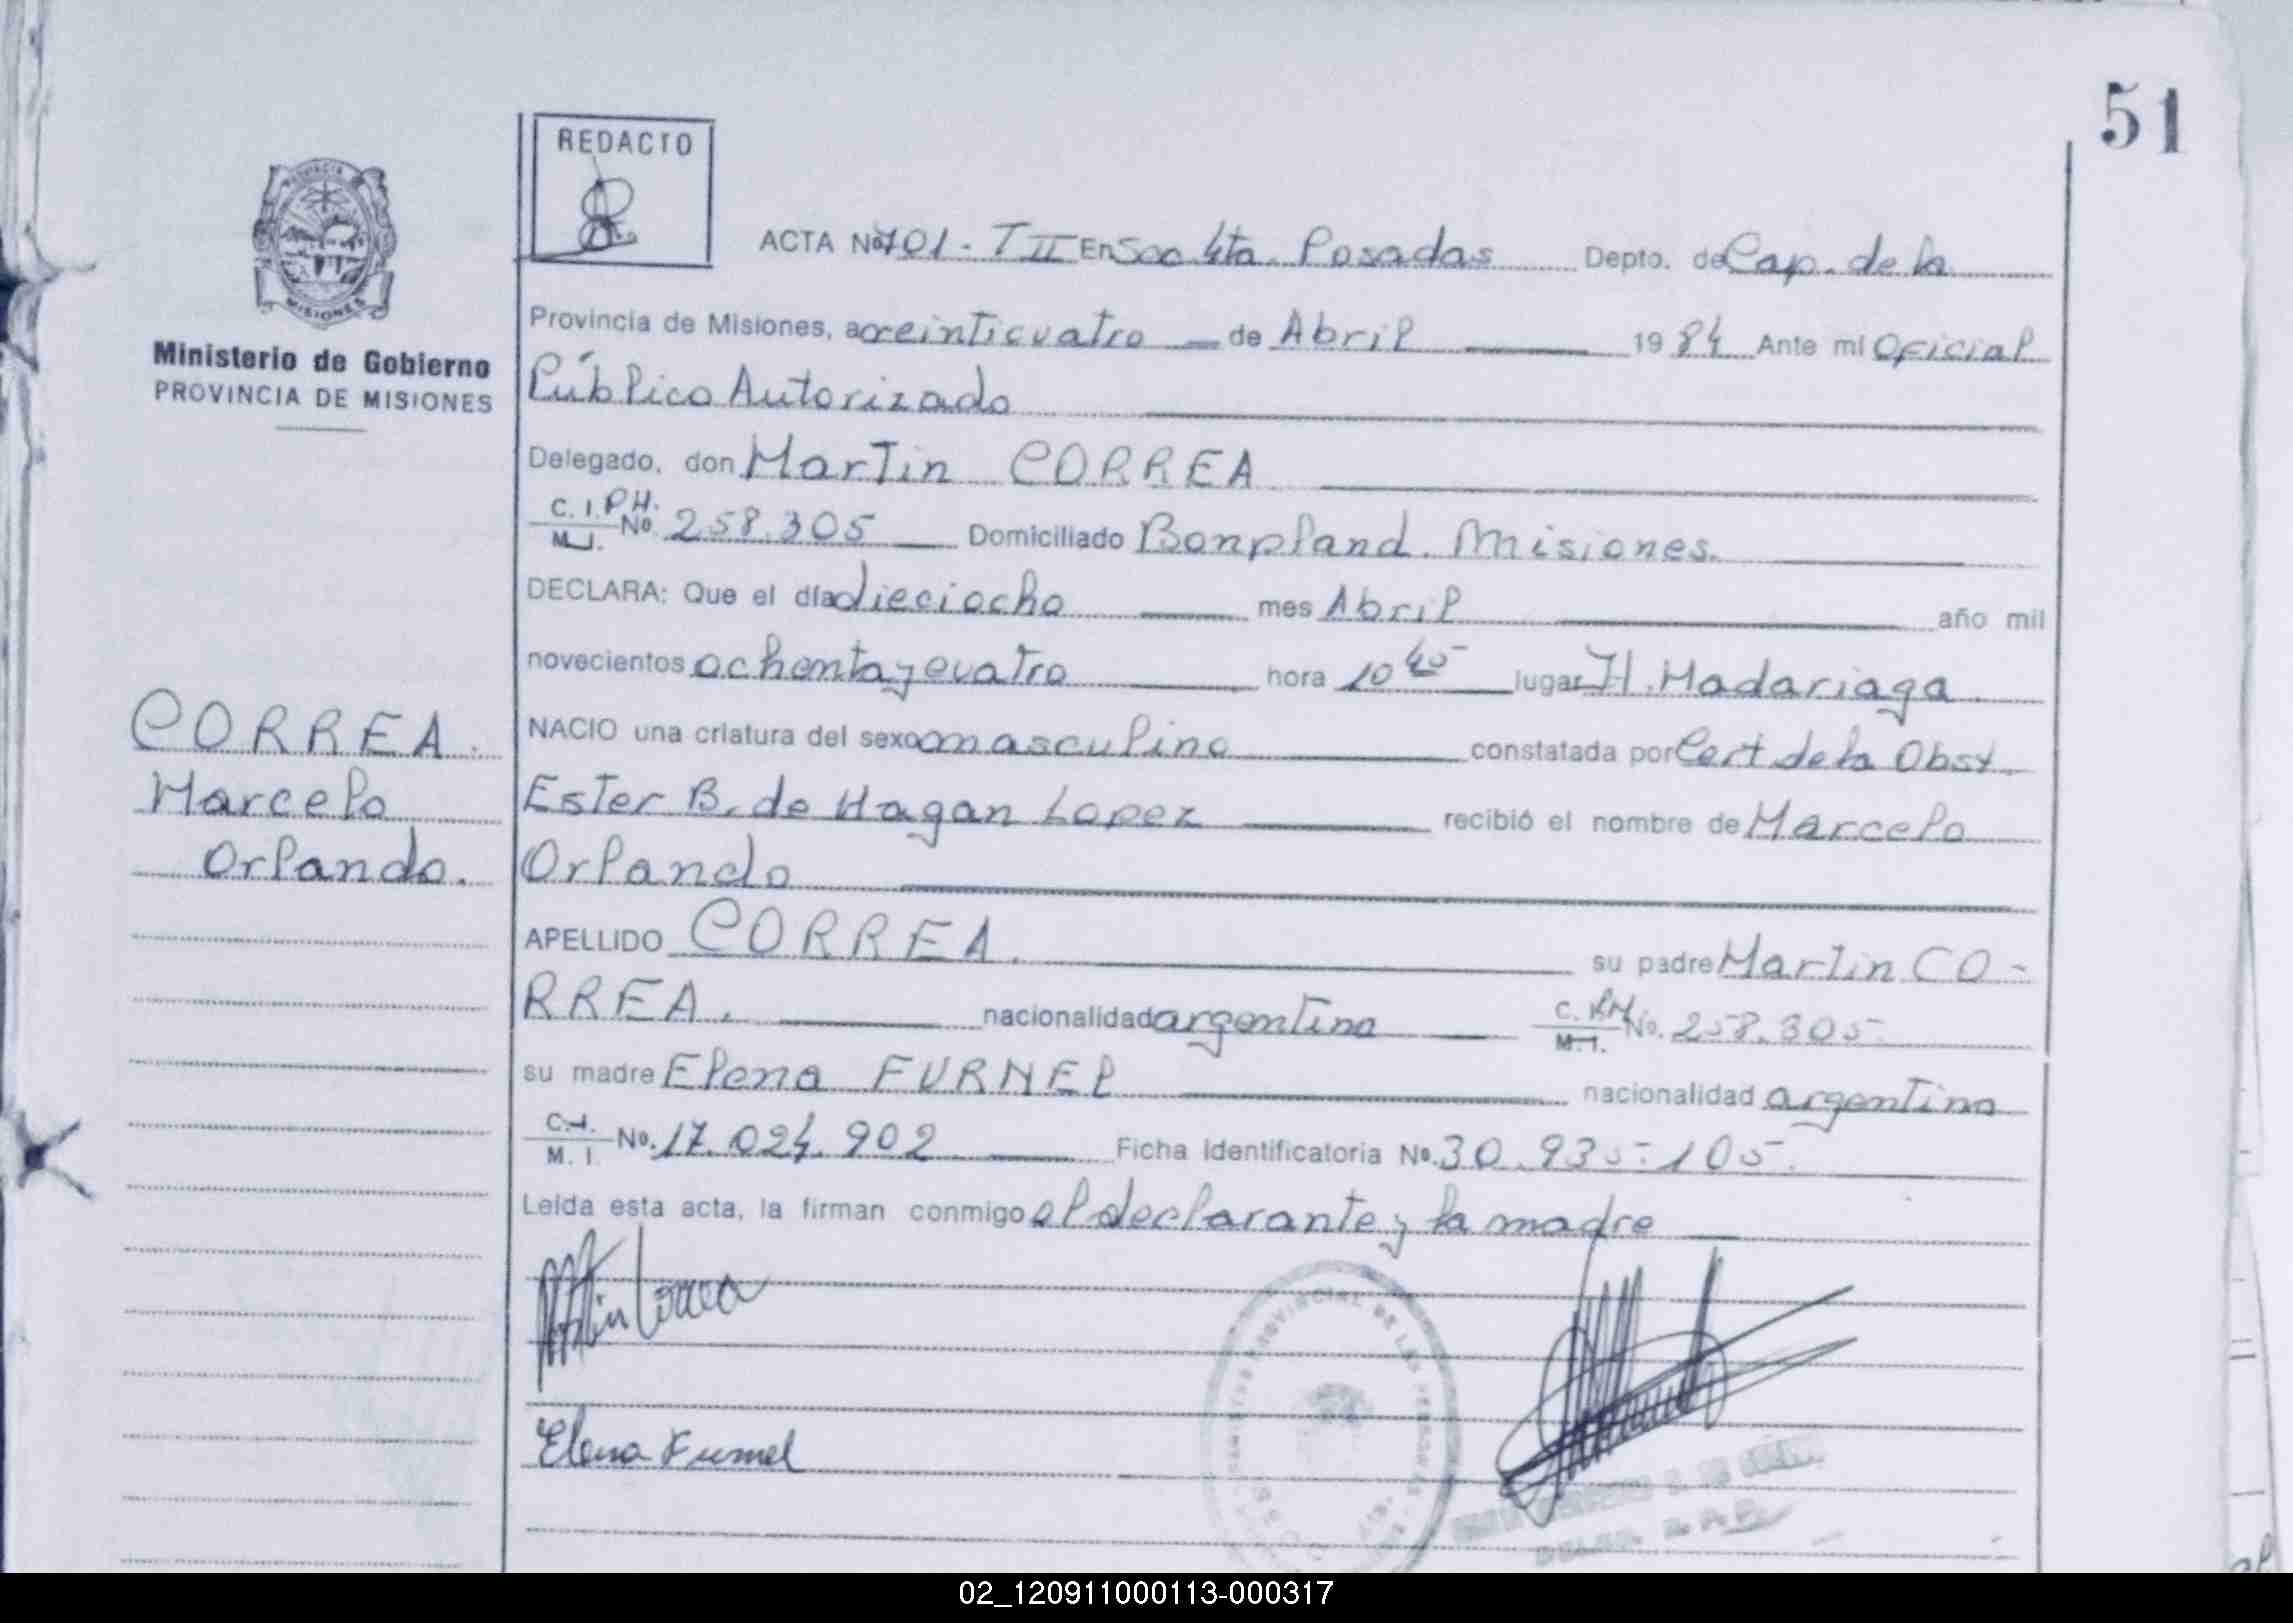 51
REDACTO
PROVINCIA
MISIONES
ACTA No 701 - T II En Secc 4ta. Posadas Depto. de Cap. de la
Ministerio de Gobierno
PROVINCIA DE MISIONES
Provincia de Misiones, a veinticuatro de Abril 1984 Ante mi Oficial
Público Autorizado
Delegado, don Martin CORREA
C. I. P.H.
M. I. No. 258.305 Domiciliado Bonpland. Misiones.
DECLARA: Que el día dieciocho mes Abril año mil
novecientos ochenta y cuatro hora 10 45 lugar H. Madariaga
CORREA.
Marcelo
Orlando.
NACIO una criatura del sexo masculino constatada por Cert de la Obst.
Ester B. de Hagan Lopez recibió el nombre de Marcelo
Orlando
APELLIDO CORREA. su padre Martin CO-
RREA. nacionalidad argentina C. P.H. M. I. No. 258.305
su madre Elena FURNEL nacionalidad argentina
C. I. M. I. No. 17.024.902 Ficha Identificatoria No. 30.935.105.
Leída esta acta, la firman conmigo el declarante y la madre
Martin Correa
PROVINCIAL DE LAS PERSONAS
Elena Furnel
02_120911000113-000317